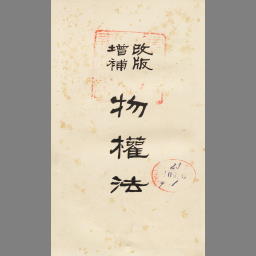 改版
增補
物權法